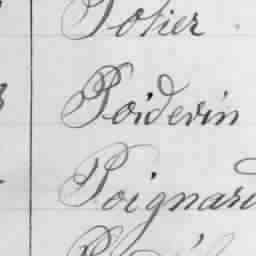 Potier
Poidevin
Poignard